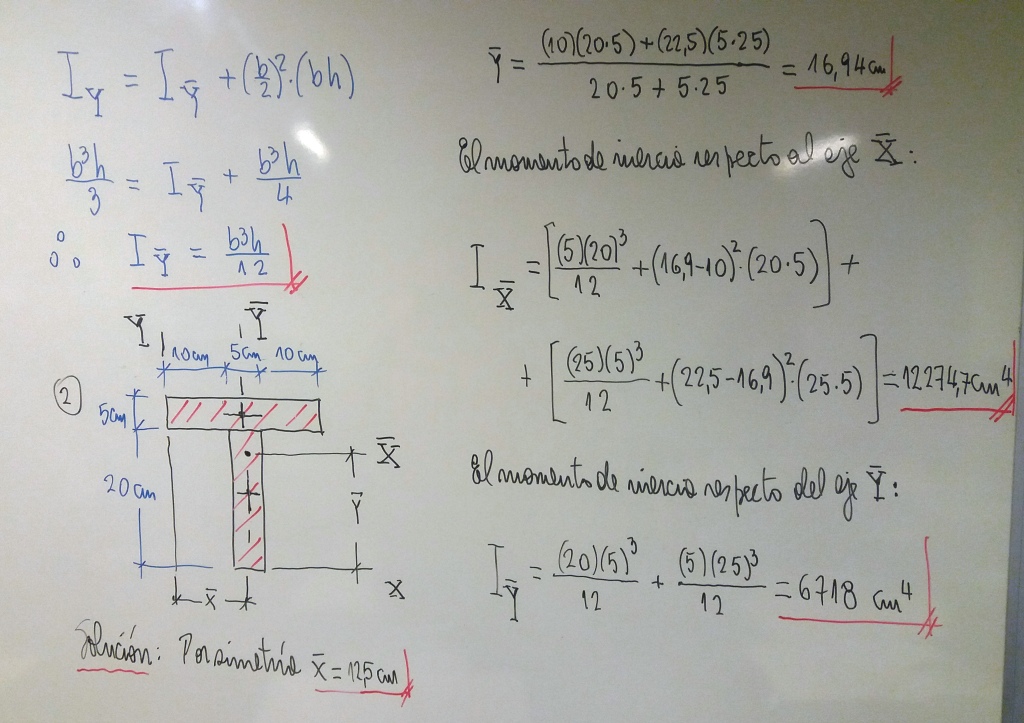 I_Y = I_Ȳ + (b/2)²·(bh)
b³h/3 = I_Ȳ + b³h/4
∴ I_Ȳ = b³h/12
Y Ȳ
10cm 5cm 10cm
2
5cm
X̄
20cm
Ȳ
X
X̄
Solución: Por simetría X̄ = 12,5cm
Ȳ = ((10)(20·5)+(22,5)(5·25))/(20·5+5·25) = 16,94cm
El momento de inercia respecto al eje X̄:
I_X̄ = [(5)(20)³/12 + (16,9-10)²·(20·5)] +
+ [(25)(5)³/12 + (22,5-16,9)²·(25·5)] = 12274,7cm⁴
El momento de inercia respecto del eje Ȳ:
I_Ȳ = (20)(5)³/12 + (5)(25)³/12 = 6718 cm⁴